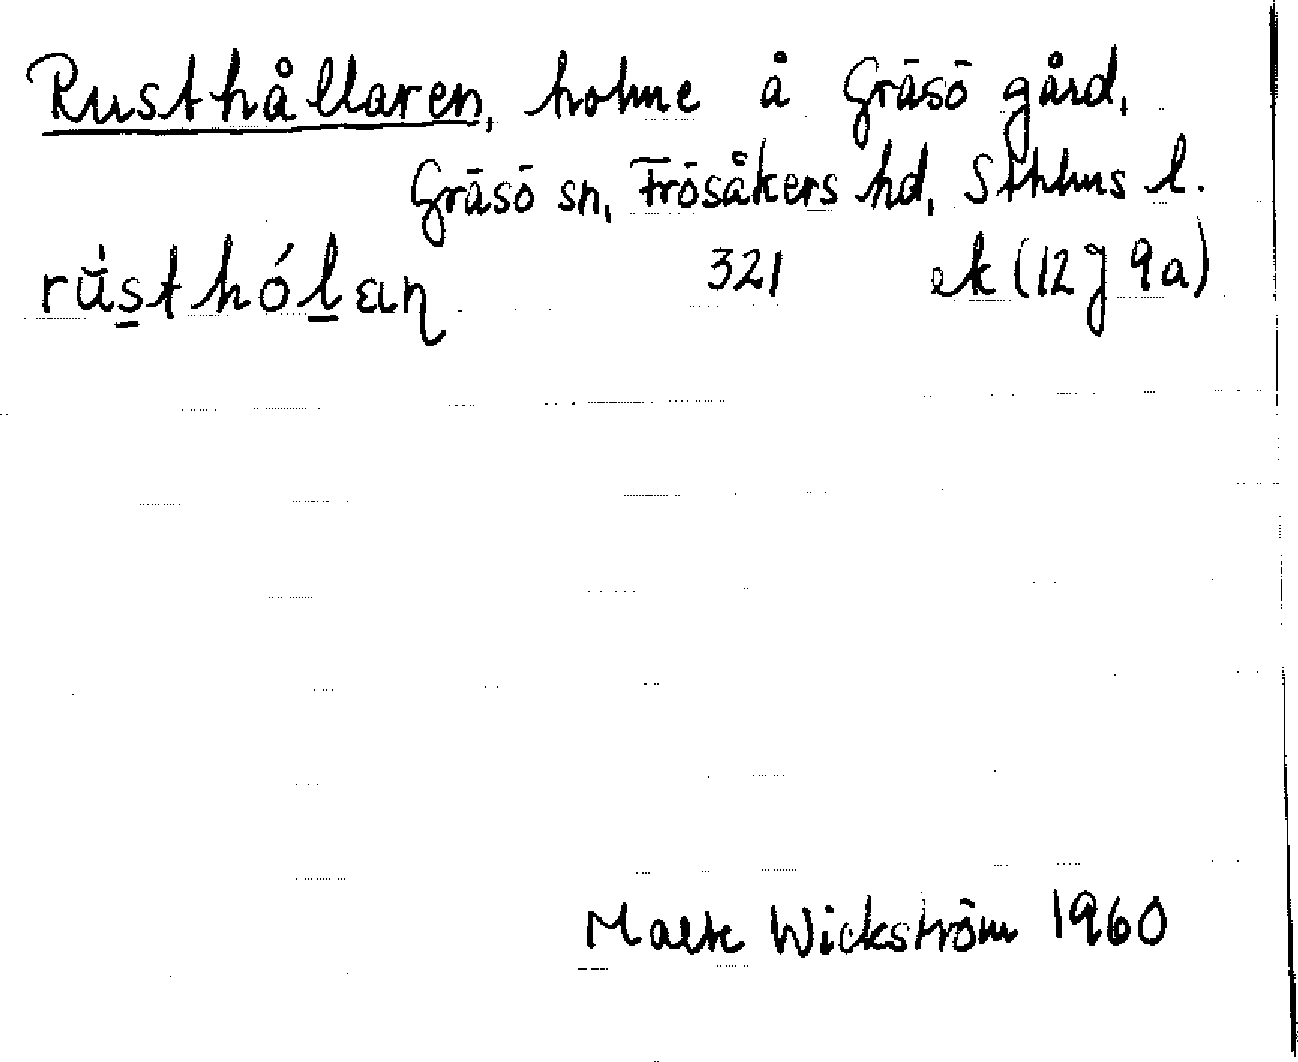 Rusthållaren, holme å Gräsö gård,
Gräsö sn, Frösåkers hd, Sthlms l.
rústhólan 321 ek (12J 9a)
Malte Wickström 1960